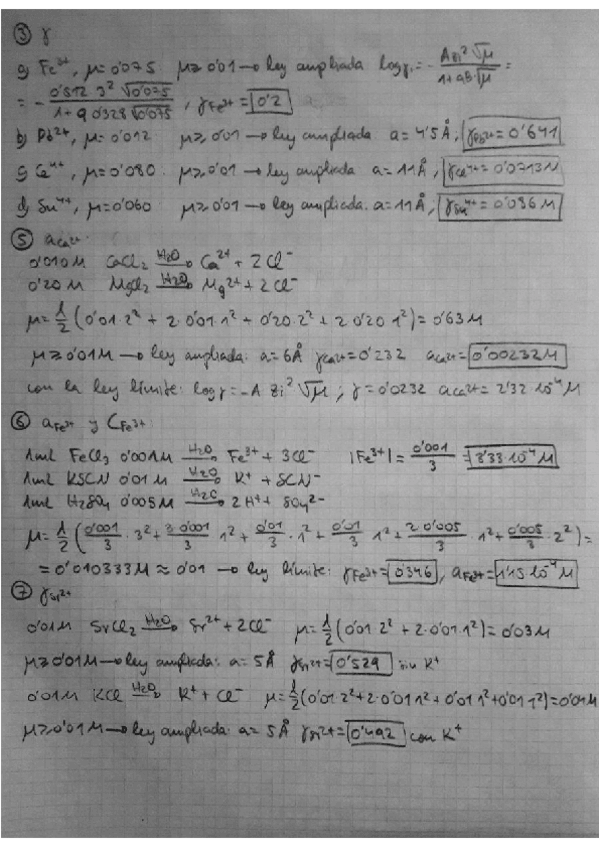 ③ γ
a) Fe³⁺, μ=0'075 μ≥0'01 → ley ampliada logγᵢ = - A zᵢ² √μ / 1+aB√μ =
= - 0'512 3² √0'075 / 1+9 0'328 √0'075 , γFe³⁺ = 0'2
b) Pb²⁺, μ=0'012 μ≥0'01 → ley ampliada a=4'5Å, γPb²⁺=0'641
c) Ce⁴⁺, μ=0'080 μ≥0'01 → ley ampliada a=11Å, γCe⁴⁺=0'0713M
d) Sn⁴⁺, μ=0'060 μ≥0'01 → ley ampliada: a=11Å, γSn⁴⁺=0'096M
⑤ aCa²⁺
0'010M CaCl₂ H₂O→ Ca²⁺ + 2Cl⁻
0'20M MgCl₂ H₂O→ Mg²⁺ + 2Cl⁻
μ= 1/2 (0'01·2² + 2·0'01·1² + 0'20·2² + 2·0'20·1²) = 0'63M
μ≥0'01M → ley ampliada: a=6Å γCa²⁺=0'232 aCa²⁺= 0'00232M
con la ley límite: logγ=-A zᵢ² √μ ; γ=0'0232 aCa²⁺= 2'32·10⁻⁴M
⑥ aFe³⁺ y CFe³⁺:
1ml FeCl₃ 0'001M H₂O→ Fe³⁺ + 3Cl⁻ |Fe³⁺| = 0'001 / 3 = 3'33·10⁻⁴M
1ml KSCN 0'01M H₂O→ K⁺ + SCN⁻
1ml H₂SO₄ 0'005M H₂O→ 2H⁺ + SO₄²⁻
μ= 1/2 (0'001/3 · 3² + 3·0'001/3 · 1² + 0'01/3 · 1² + 0'01/3 · 1² + 2·0'005/3 · 1² + 0'005/3 · 2²) =
= 0'010333M ≈ 0'01 → ley límite: γFe³⁺= 0'346, aFe³⁺= 1'15·10⁻⁴M
⑦ γSr²⁺
0'01M SrCl₂ H₂O→ Sr²⁺ + 2Cl⁻ μ= 1/2 (0'01·2² + 2·0'01·1²) = 0'03M
μ≥0'01M → ley ampliada: a=5Å γSr²⁺= 0'529 sin K⁺
0'01M KCl H₂O→ K⁺ + Cl⁻ μ= 1/2 (0'01·2² + 2·0'01·1² + 0'01·1² + 0'01·1²) = 0'04M
μ≥0'01M → ley ampliada: a=5Å γSr²⁺= 0'492 con K⁺